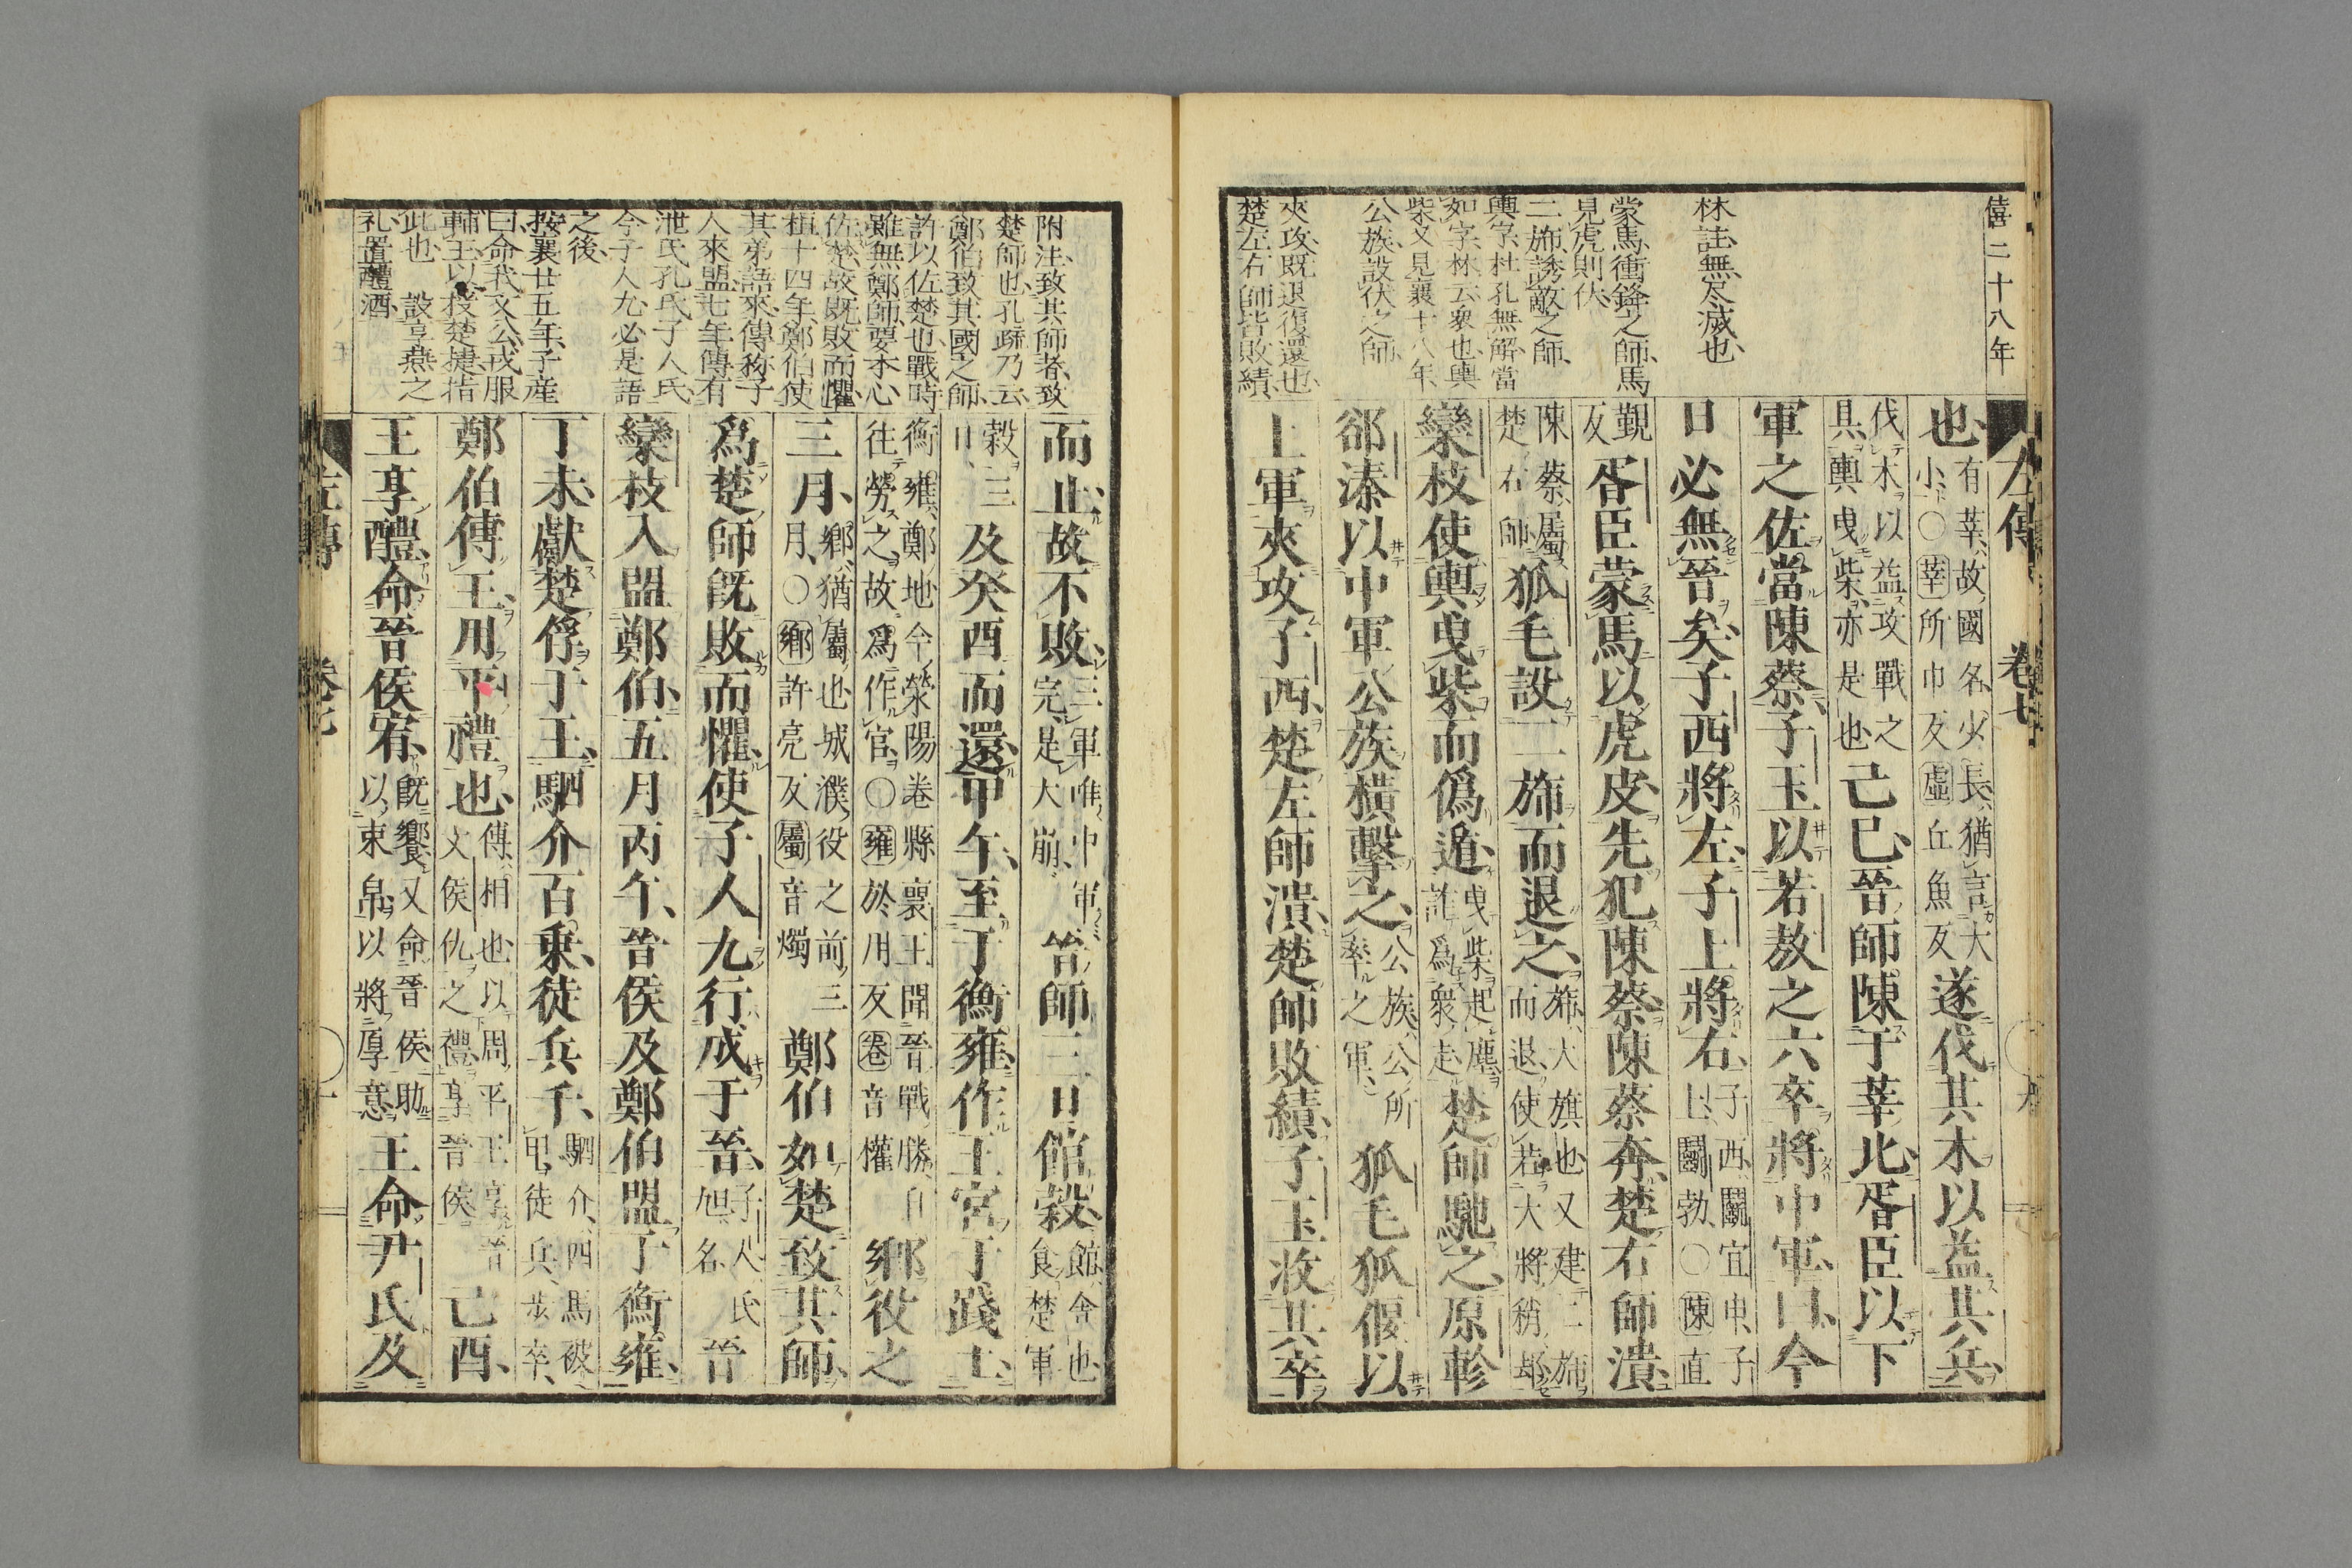 僖二十八年
林註、無尽滅也、
蒙馬、衝鋒之師、馬
見虎則伏、
二旆、誘敵之師、
輿字、杜孔無解、當
如字、林云、衆也、輿
柴又見襄十八年、
公族、設伏之師
夾攻、既退復還也、
楚左右師皆敗績、
左傳 卷七
也、有莘、故國名、少、長、猶言大
小、○莘所巾反虛丘魚反遂伐其木以益其兵、
伐木以益攻戰之
具、輿曳柴、亦是也己巳、晉師陳于莘北、胥臣以下
軍之佐當陳蔡、子玉以若敖之六卒將中軍、曰、今
日必無晉矣、子西將左、子上將右、子西、鬬宜申、子
上、鬬勃、○陳直
覲
反胥臣蒙馬以虎皮、先犯陳蔡、陳蔡奔、楚右師潰、
陳蔡、屬
楚右師狐毛設二旆而退之、旆、大旗也、又建二旆
而退、使若大將稍却
欒枝使輿曳柴而僞遁、曳柴起塵、
詐爲衆走楚師馳之、原軫
郤溱以中軍公族橫擊之、公族、公所
率之軍、狐毛狐偃以
上軍夾攻子西、楚左師潰、楚師敗績、子玉收其卒
附注、致其師者、致
楚師也、孔疏乃云、
鄭伯致其國之師、
許以佐楚也、戰時
雖無鄭師、要本心
佐楚、故既敗而懼、
桓十四年、鄭伯使
其弟語來、傳称子
人來盟、七年傳有
泄氏孔氏子人氏、
今子人九必是語
之後、
按襄廿五年、子産
曰、命我文公、戎服
輔王、以授楚捷、指
此也、設享燕之
礼、置醴酒、
而止、故不敗、三軍唯中軍
完、是大崩、晉師三日館穀、館、舍也、
食楚軍
穀三
日、及癸酉而還、甲午、至于衡雍、作王宮于踐土、
衡雍、鄭地、今滎陽卷縣、襄王聞晉戰勝、自
往勞之、故爲作宮、○雍於用反卷音權鄉役之
三月、鄉、猶屬也、城濮役之前三
月、○鄉許亮反屬音燭鄭伯如楚致其師、
爲楚師既敗而懼、使子人九行成于晉、子人、氏
九、名、晉
欒枝入盟鄭伯、五月丙午、晉侯及鄭伯盟于衡雍、
丁未、獻楚俘于王、駟介百乘、徒兵千、駟介、四馬被
甲、徒兵、步卒、
鄭伯傅王、用平禮也、傅、相也、以周平王享晉
文侯仇之禮、享晉侯己酉、
王享醴、命晉侯宥、既饗、又命晉侯、助
以束帛、以將厚意王命尹氏及
左傳 卷七